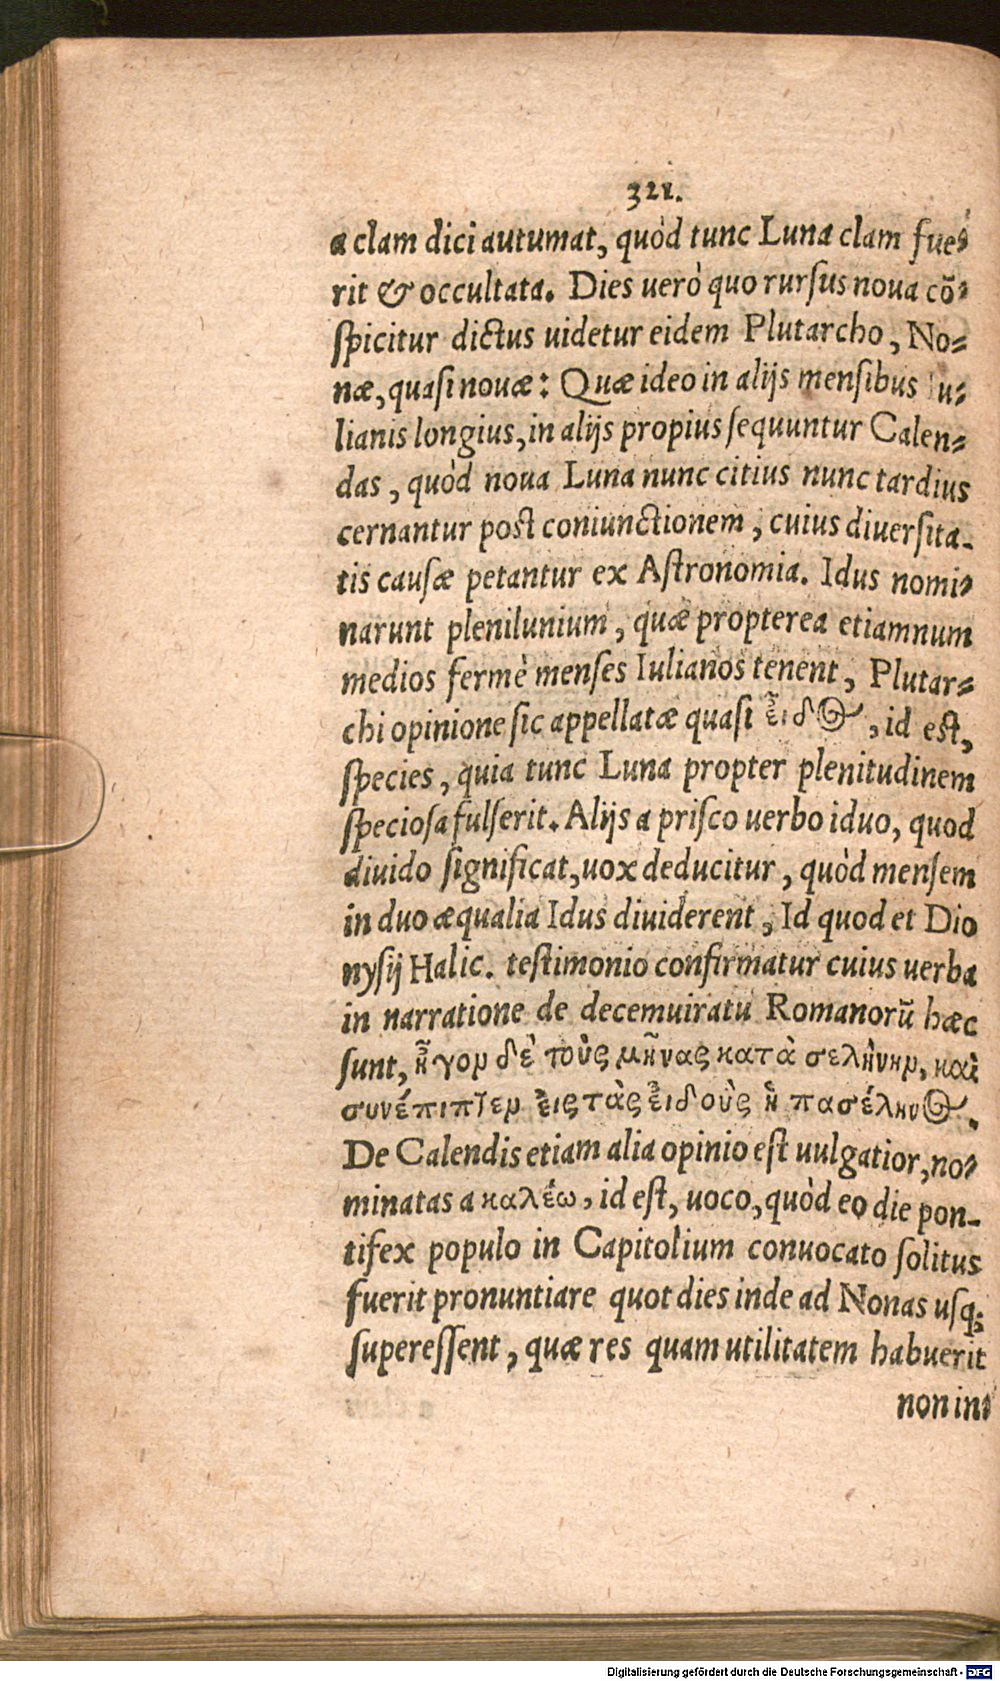 321.
a clam dici autumat, quòd tunc Luna clam fue-
rit & occultata. Dies uerò quo rursus noua cō-
spicitur dictus uidetur eidem Plutarcho, No-
næ, quasi nouæ: Quæ ideo in alijs mensibus Iu-
lianis longius, in alijs propius sequuntur Calen-
das, quòd noua Luna nunc citius nunc tardius
cernantur post coniunctionem, cuius diuersita-
tis causæ petantur ex Astronomia. Idus nomi-
narunt plenilunium, quæ propterea etiamnum
medios fermè menses Iulianos tenent, Plutar-
chi opinione sic appellatæ quasi ἶιδος, id est,
species, quia tunc Luna propter plenitudinem
speciosa fulserit. Alijs a prisco uerbo iduo, quod
diuido significat, uox deducitur, quòd mensem
in duo æqualia Idus diuiderent, Id quod et Dio
nysij Halic. testimonio confirmatur cuius uerba
in narratione de decemuiratu Romanorū hæc
sunt, ἦγον δὲ τοὺς μῆνας κατὰ σελήνην, καὶ
συνέπιπτεν ἐις τὰς ἐιδοὺς ἡ πασέληνος.
De Calendis etiam alia opinio est uulgatior, no-
minatas a καλέω, id est, uoco, quòd eo die pon-
tifex populo in Capitolium conuocato solitus
fuerit pronuntiare quot dies inde ad Nonas usq;
superessent, quæ res quam utilitatem habuerit
non in-
Digitalisierung gefördert durch die Deutsche Forschungsgemeinschaft - DFG